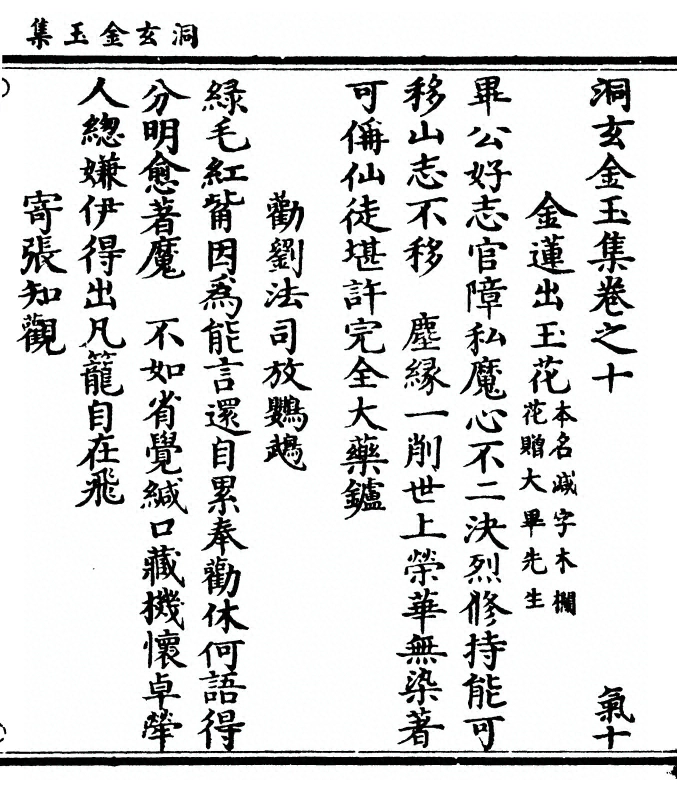 洞玄金玉集
洞玄金玉集卷之十
氣十
金蓮出玉花
本名減字木欄
花贈大畢先生
畢公好志官障私魔心不二決烈修持能可
移山志不移　塵緣一削世上榮華無染著
可稱仙徒堪許完全大藥鑪
勸劉法司放鸚鵡
綠毛紅觜因爲能言還自累奉勸休何語得
分明愈著魔　不如省覺緘口藏機懷卓犖
人總嫌伊得出凡籠自在飛
寄張知觀